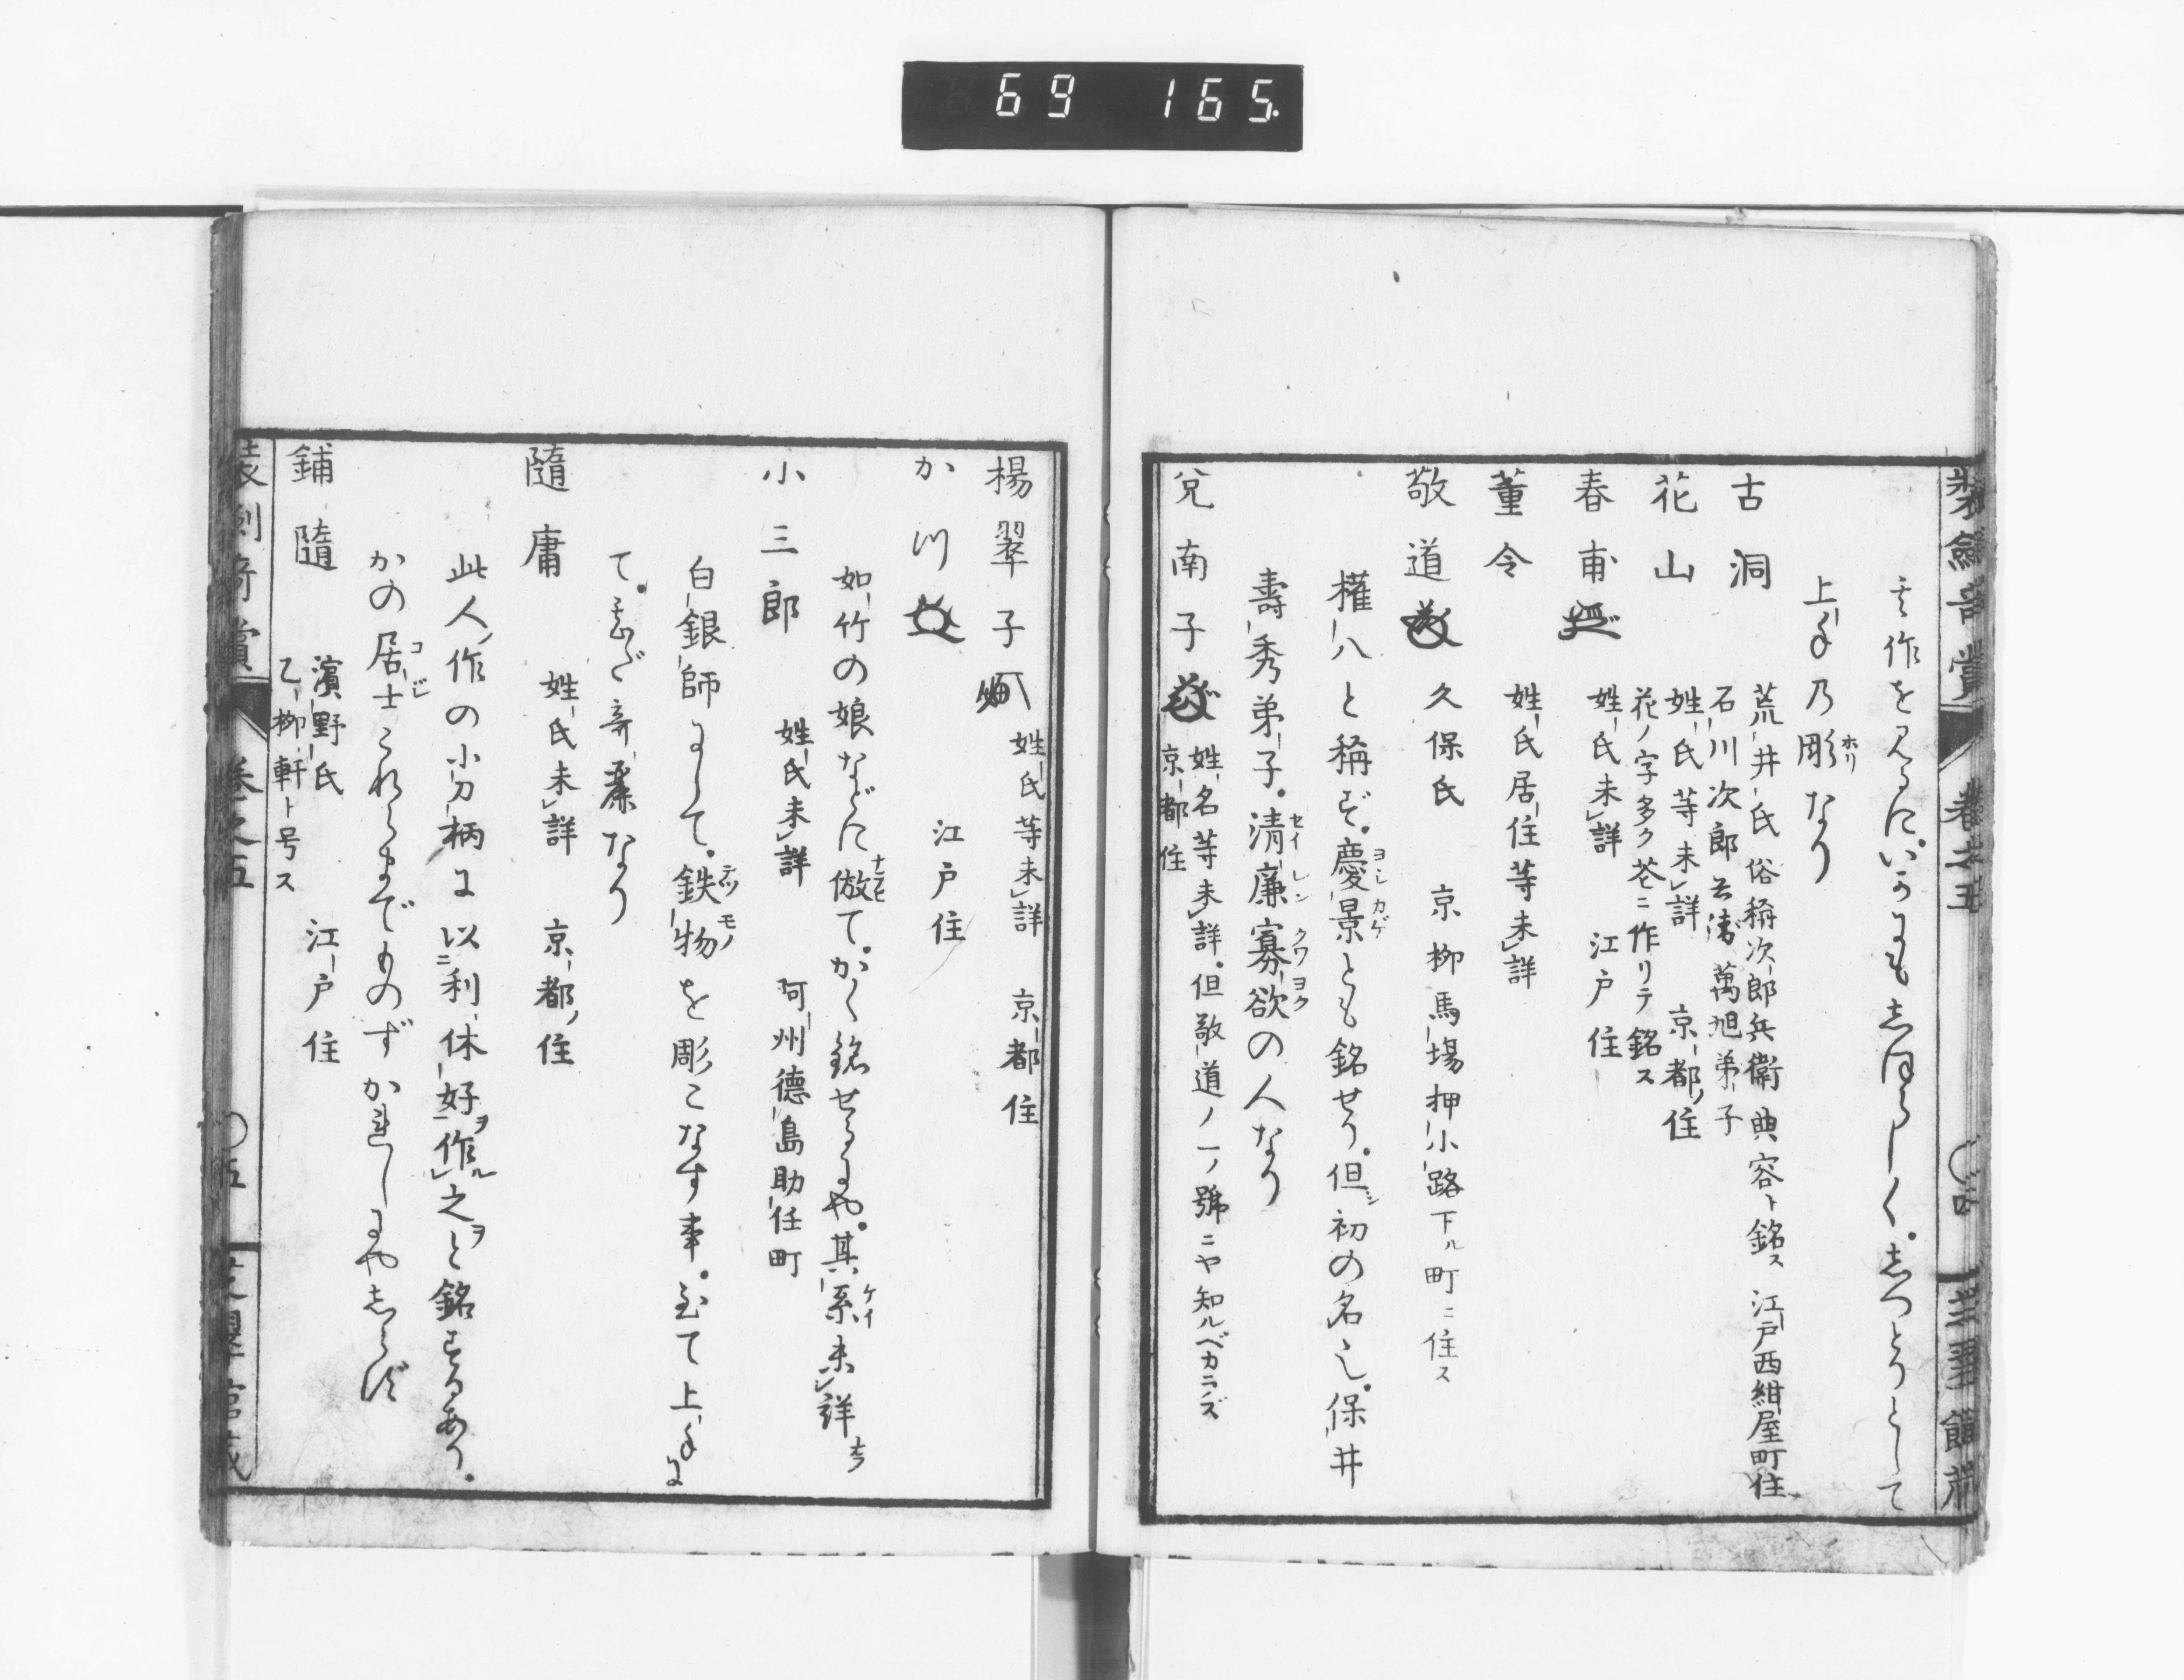 69 165.
其作を見るに。いかにも志ほらしく。志つとりとして
上手乃彫なり
ホリ
古洞
荒井氏 俗稱次郎兵衛 典容ト銘ス 江戸西紺屋町住
石川次郎 萬旭弟子
花山
姓氏等未詳 京都ノ住
花ノ字多ク苍ニ作リテ銘ス
春甫
姓氏未詳 江戸住
董令
姓氏居住等未詳
敬道
久保氏 京柳馬場押小路下ル町ニ住ス
權八と稱ず。慶景とも銘せり。但シ初の名也。保井
ヨシカゲ
壽秀弟子。清廉寡欲の人なり
セイレンクワヨク
兌南子
姓名等未詳。但敬道ノ一ノ號ニヤ知ルベカラズ
京都住
楊翠子
姓氏等未詳 京都住
か川
江戸住
如竹の娘などに倣て。かく銘せるにや。其系未詳
ナラヒ
ケイ
小三郎
姓氏未詳 阿州德島助任町
白銀師にして。鉄物を彫こなす事。至て上手に
テツモノ
て。甚だ奇麗なり
隨庸
姓氏未詳 京都ノ住
此人ノ作の小刀柄に以ニ利休好ヲ作ル之ヲと銘ずるあり。
かの居士これらまでものずかれしにや志らず
コジ
鋪隨
濱野氏 江戸住
乙柳軒ト号ス
装劍奇賞 巻之五 〇五